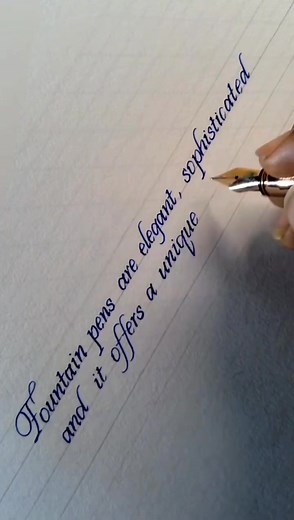 Fountain pens are elegant, sophisticated
and it offers a unique